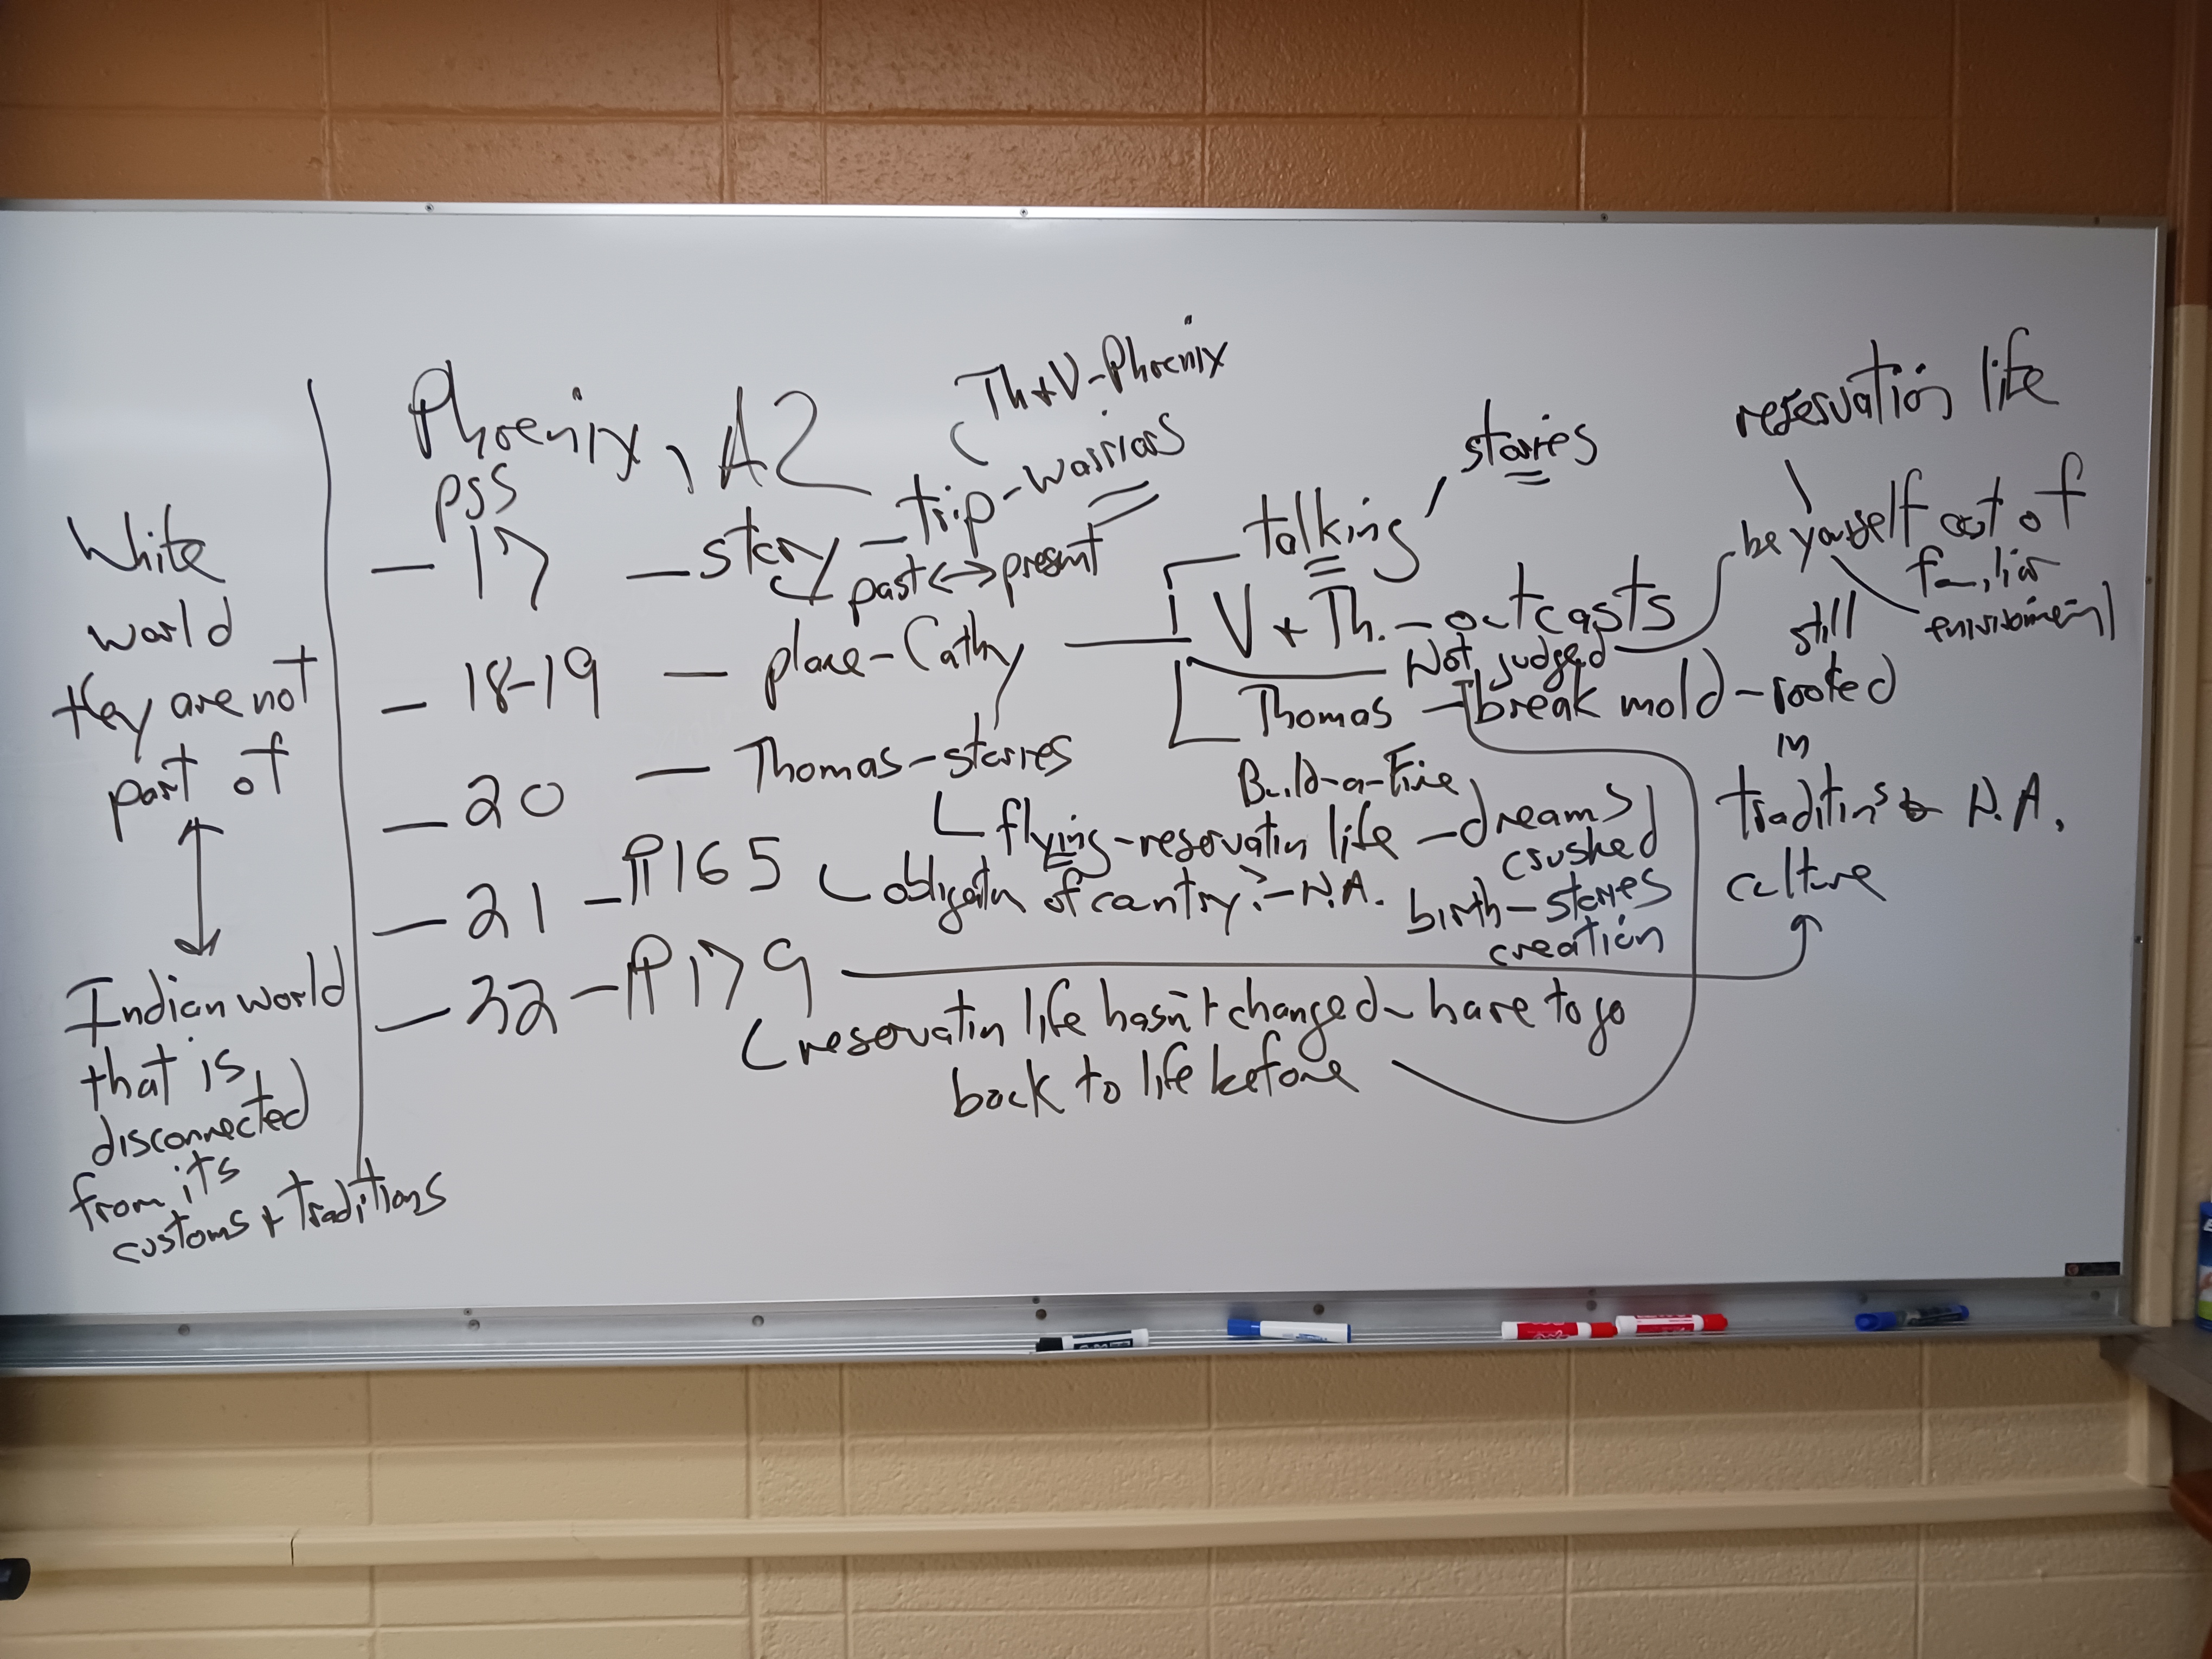 White
world
they are not
part of
Indian world
that is
disconnected
from its
customs + traditions
Phoenix, AZ
pgs
Th + V - Phoenix
- 17 - story - trip - warriors
past <-> present
- 18-19 - plane - Cathy - V + Th. - outcasts
talking - stories
Not judged
be yourself out of
familiar
environment
reservation life
Thomas - break mold - rooted
Build-a-Fire
still
in
traditions N.A.
culture
- 20 - Thomas - stories
flying - reservatin life - dreams
crushed
- 21 - ¶165 obligatn of country? - N.A.
birth - stories
creation
- 32 - ¶179
reservatin life hasn't changed - have to go
back to life before